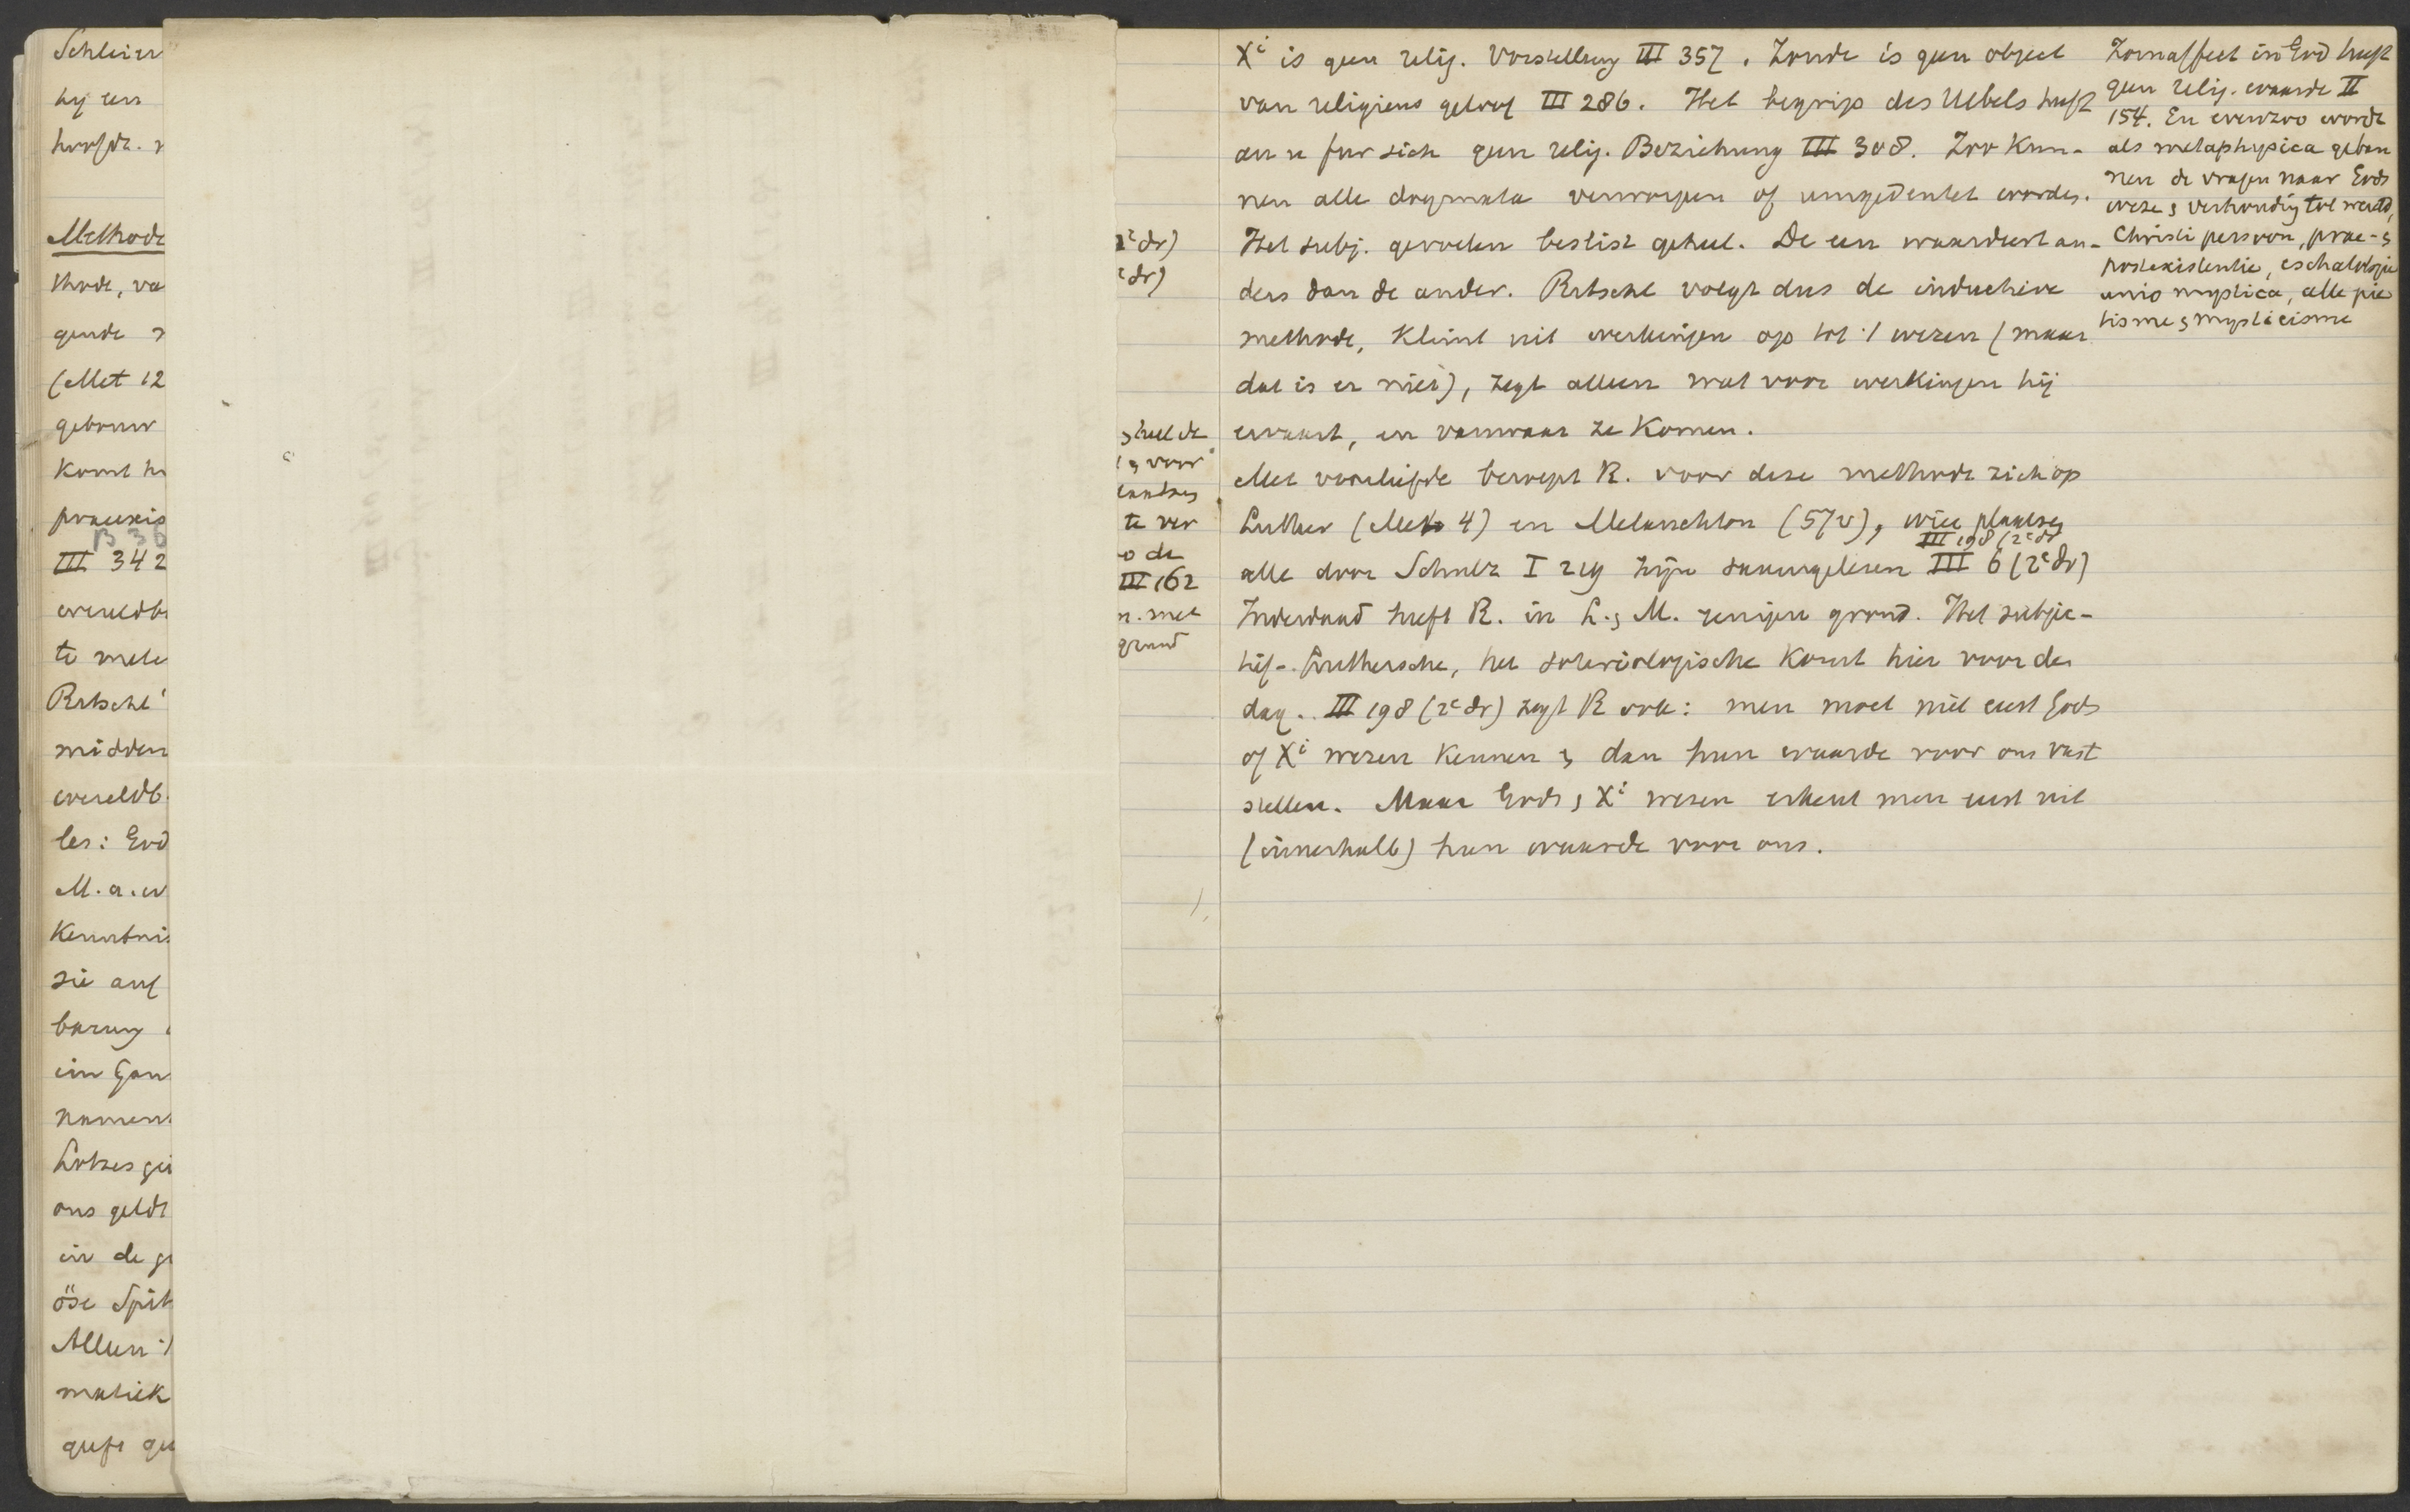 Schleier
hij een
hoofdz.
Methode
thode, va
gende
(Met 12
gebouw
komt h
praeexis
B 36
III 342
wereldb
te mete
Ritschl'
midden
wereldb.
les: God
M.a.w
Kenntnis
sie auf
barung
ein Gan
namen
Lotzes
ons geldt
in de g
öse Spit
Alleen
matiek
geeft ge
2e dr)
e dr)
heel de
voor
te ver
o de
III 162
n. met
grond
Xi is geen relig. Vorstellung III 357. Zonde is geen object
van religieus geloof III 286. Het begrip des Uebels heeft
an u fur sich geen relig. Beziehung III 308. Zoo kun-
nen alle dogmata verworpen of umgedeutet worden.
Het subj. gevoelen beslist geheel. De een waardeert an-
ders dan de ander. Ritschl volgt dus de inductieve
methode, klimt uit werkingen op tot 't wezen (maar
dat is er niet), zegt alleen wat voor werkingen hij
ervaart, en vanwaar ze komen.
Met voorliefde beroept R. voor deze methode zich op
Luther (Meth 4) en Melanchton (57v), wier plaatsen
III 198 (2e dr
alle door Schultz I 219 zijn saamgelezen III 6 (2e dr)
Inderdaad heeft R. in L. & M. eenigen grond. Het subjec-
tief-Luthersche, het soteriologische komt hier voor den
dag. III 198 (2e dr) zegt R ook: men moet niet eerst Gods
of Xi wezen kennen & dan hun waarde voor ons vast
stellen. Maar Gods & Xi wezen erkent men eerst uit
(innerhalb) hun waarde voor ons.
Zornaffect in God heeft
geen relig. waarde II
154. En evenzoo wordt
als metaphysica geban
nen de vragen naar Gods
weze & verhouding tot wereld,
Christi persoon, prae- &
postexistentie, eschatologie
unio mystica, alle pie
tisme & mysticisme